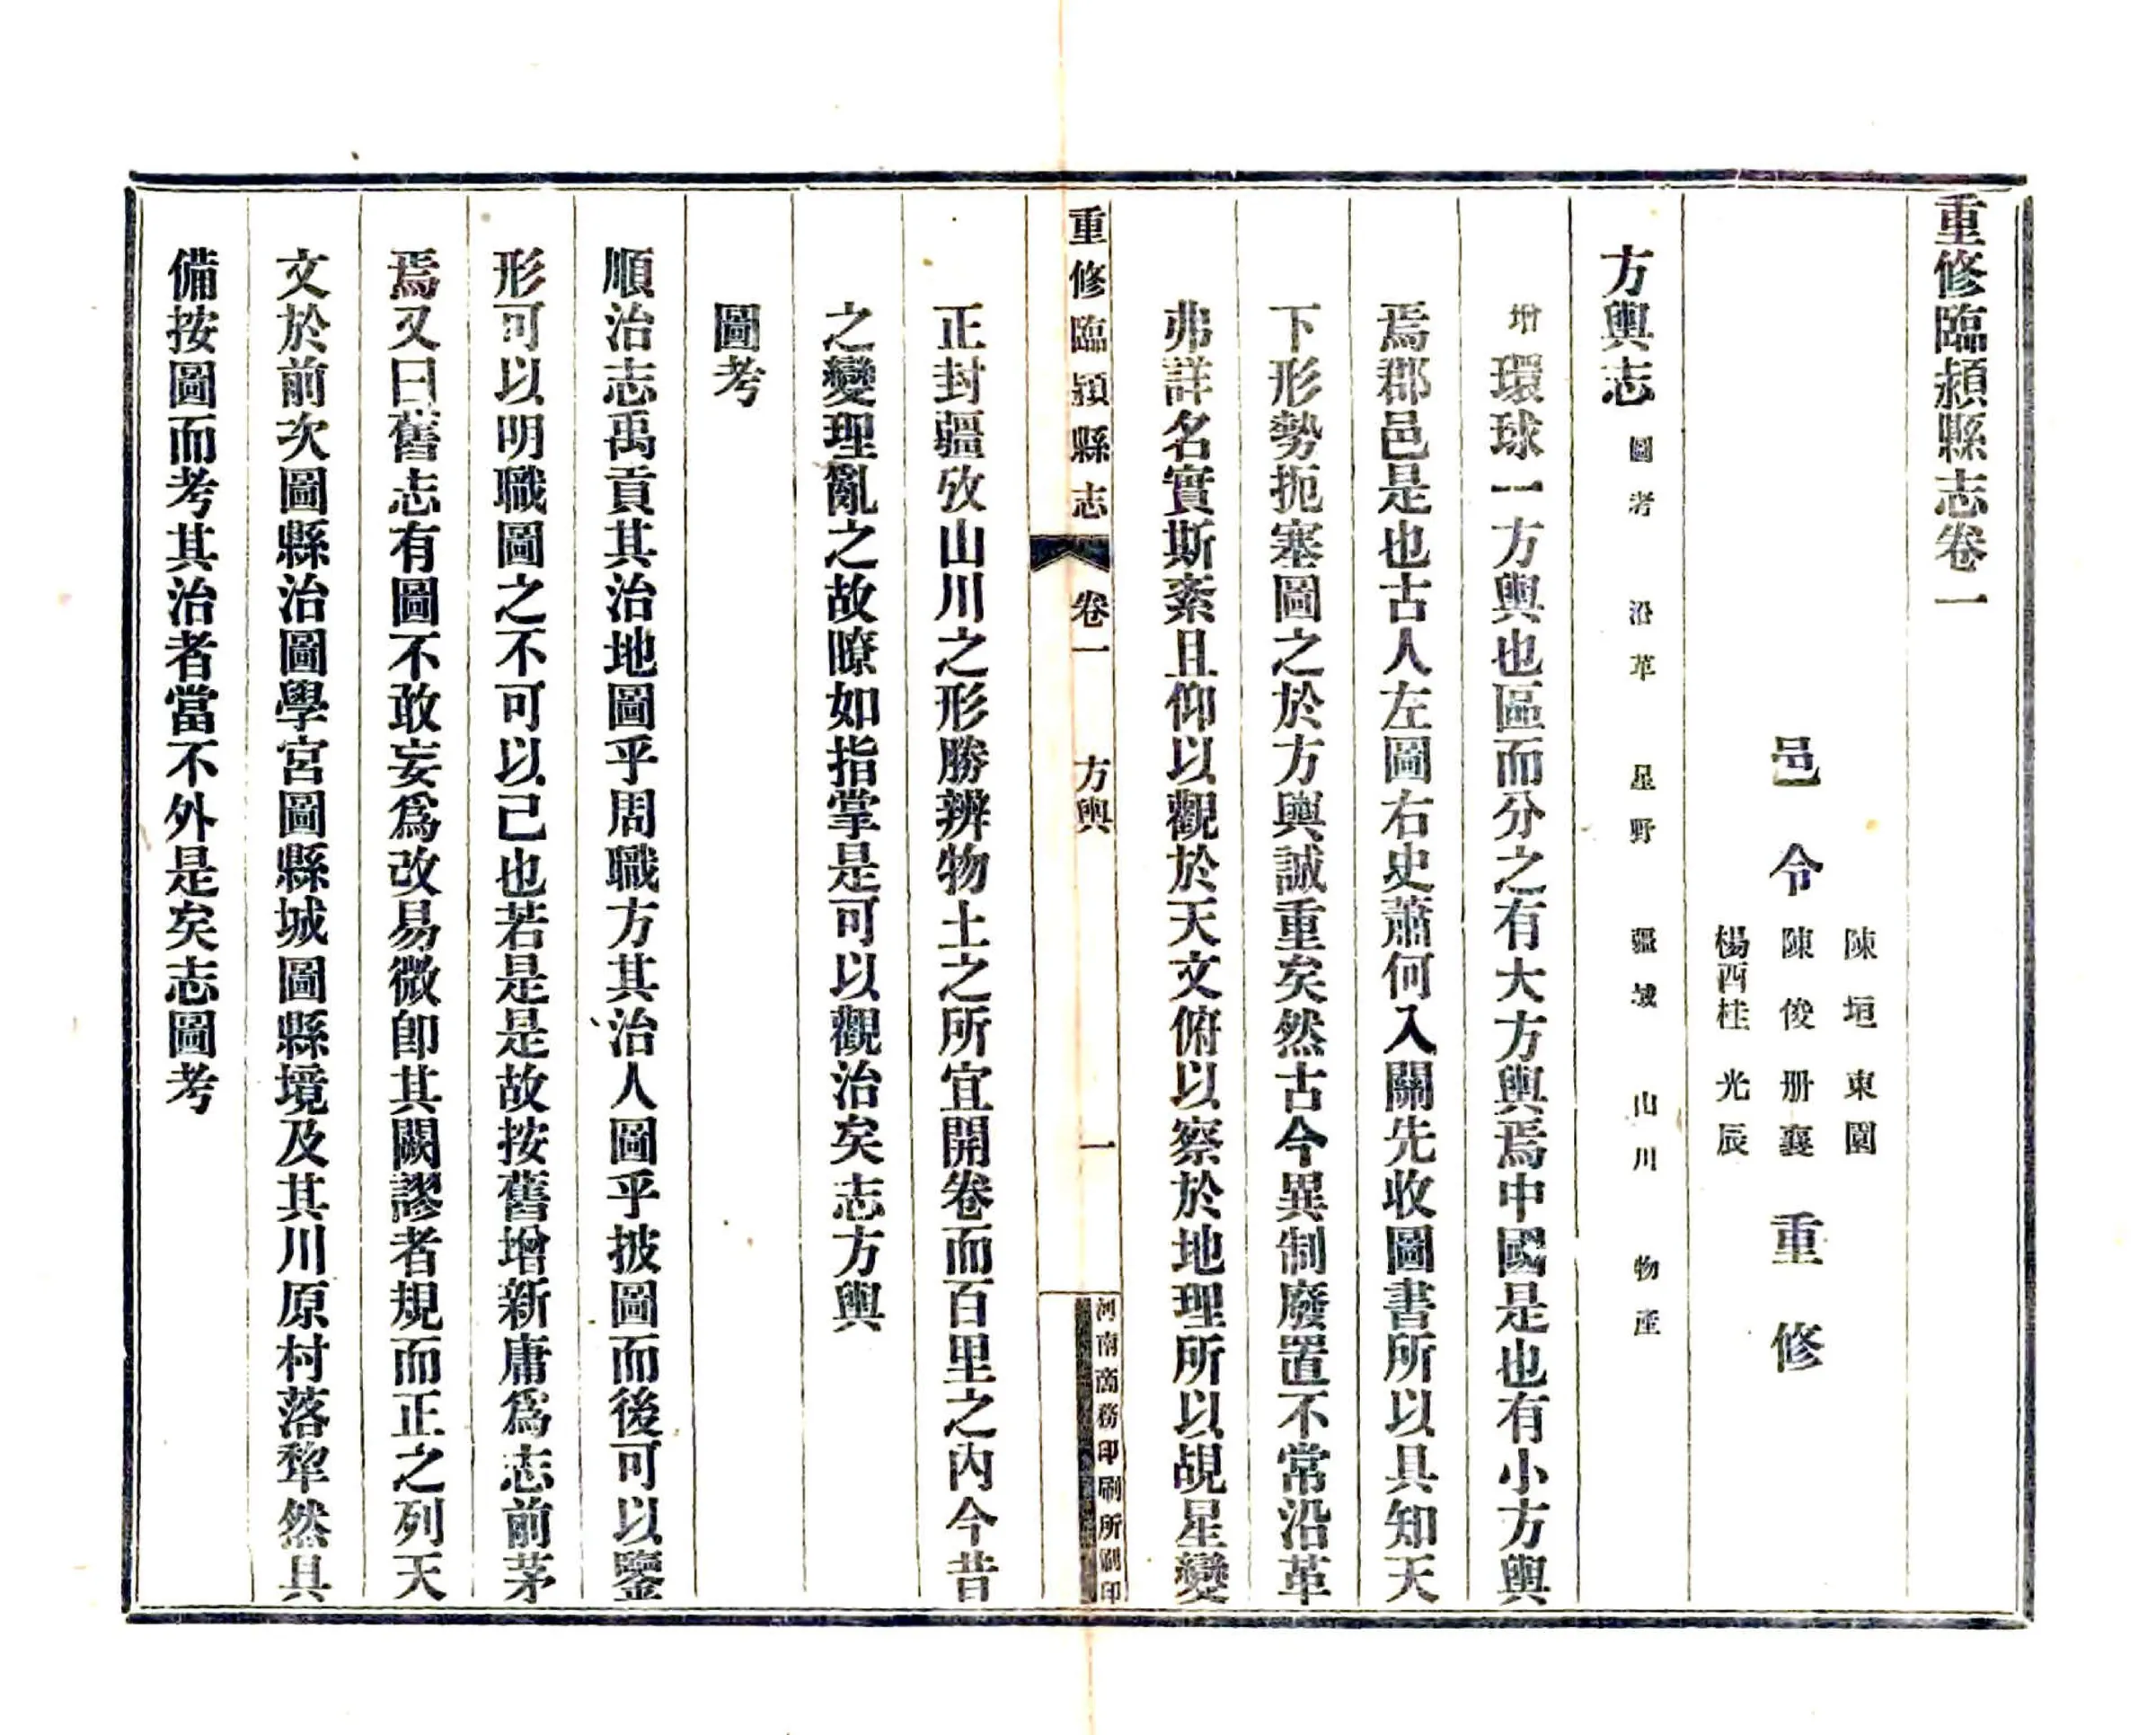 重修臨潁縣志卷一
陳垣東園
邑令陳俊册襄重修
楊酉桂光辰
方輿志 圖考 沿革 星野 疆域 山川 物產
增環球一方輿也區而分之有大方輿焉中國是也有小方輿
焉郡邑是也古人左圖右史蕭何入關先收圖書所以具知天
下形勢扼塞圖之於方輿誠重矣然古今異制廢置不常沿革
弗詳名實斯紊且仰以觀於天文俯以察於地理所以覘星變
重修臨潁縣志 卷一 方輿 一 河南商務印刷所刷印
正封疆攷山川之形勝辨物土之所宜開卷而百里之內今昔
之變理亂之故瞭如指掌是可以觀治矣志方輿
圖考
順治志禹貢其治地圖乎周職方其治人圖乎披圖而後可以鑒
形可以明職圖之不可以已也若是是故按舊增新庸爲志前茅
焉又曰舊志有圖不敢妄爲改易微卽其闕謬者規而正之列天
文於前次圖縣治圖學宮圖縣城圖縣境及其川原村落犂然具
備按圖而考其治者當不外是矣志圖考